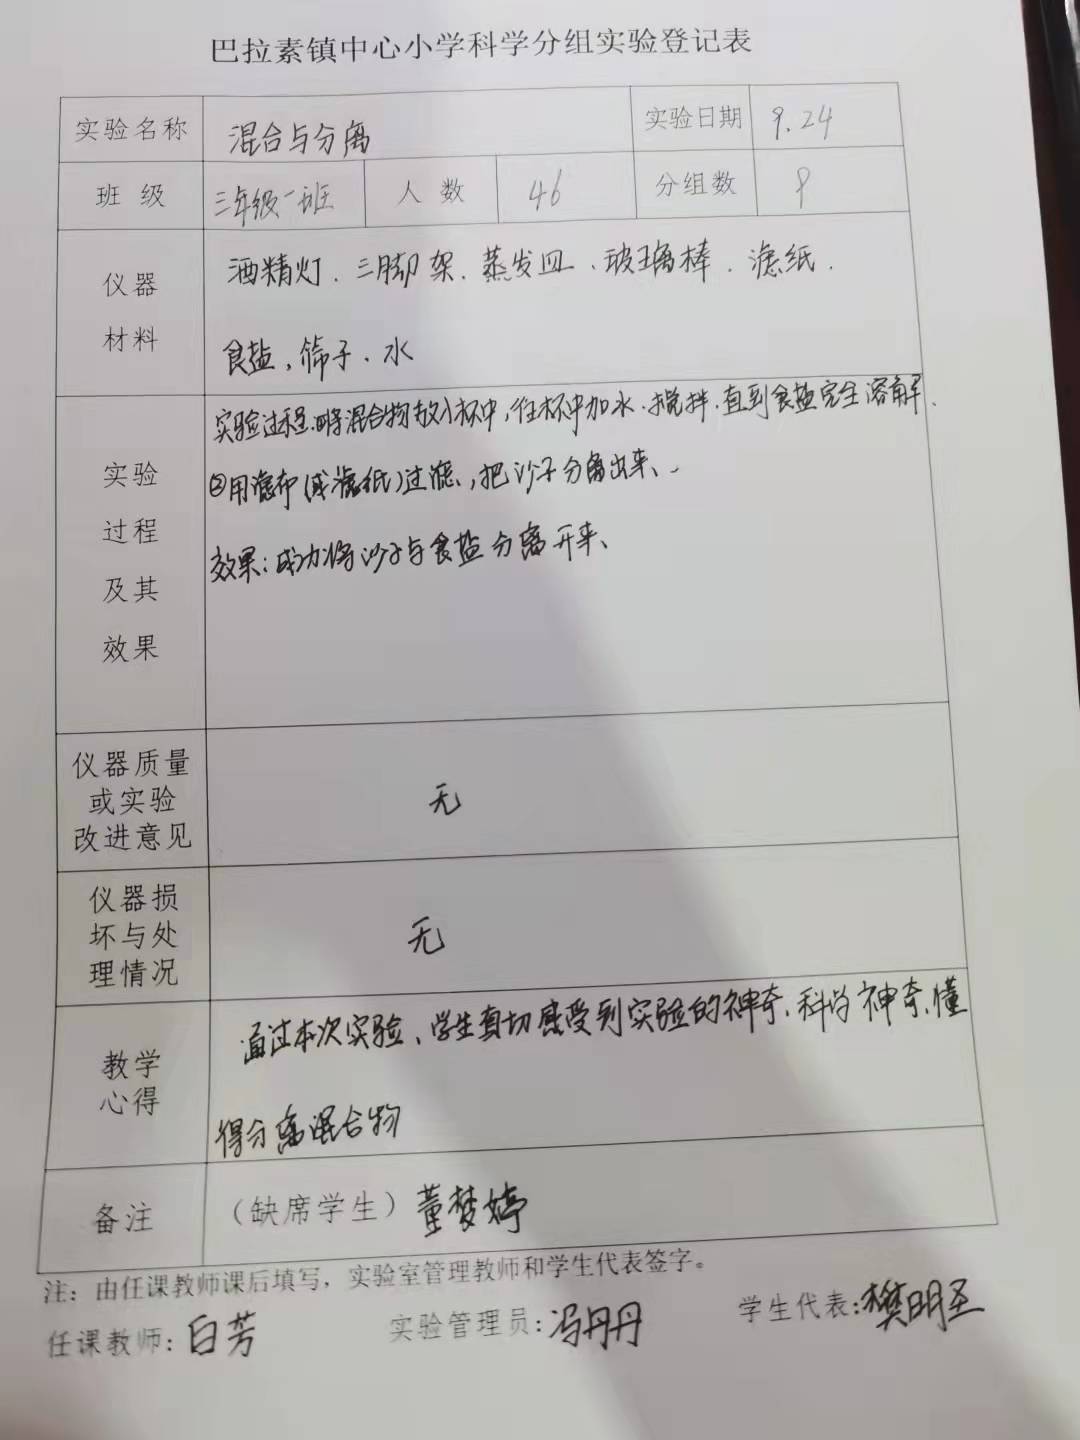 巴拉素镇中心小学科学分组实验登记表
实验名称 混合与分离 实验日期 9.24
班 级 三年级一班 人 数 46 分组数 9
仪器
材料
酒精灯、三脚架、蒸发皿、玻璃棒、滤纸、
食盐、筛子、水
实验
过程
及其
效果
实验过程:将混合物放入杯中,往杯中加水、搅拌、直到食盐完全溶解、
②用滤布(或滤纸)过滤、,把沙子分离出来、
效果:成功将沙子与食盐分离开来、
仪器质量
或实验
改进意见
无
仪器损
坏与处
理情况
无
教学
心得
通过本次实验、学生真切感受到实验的神奇、科学神奇、懂
得分离混合物
备注 (缺席学生)董梦婷
注:由任课教师课后填写,实验室管理教师和学生代表签字。
任课教师:白芳 实验管理员:冯丹丹 学生代表:樊明圣